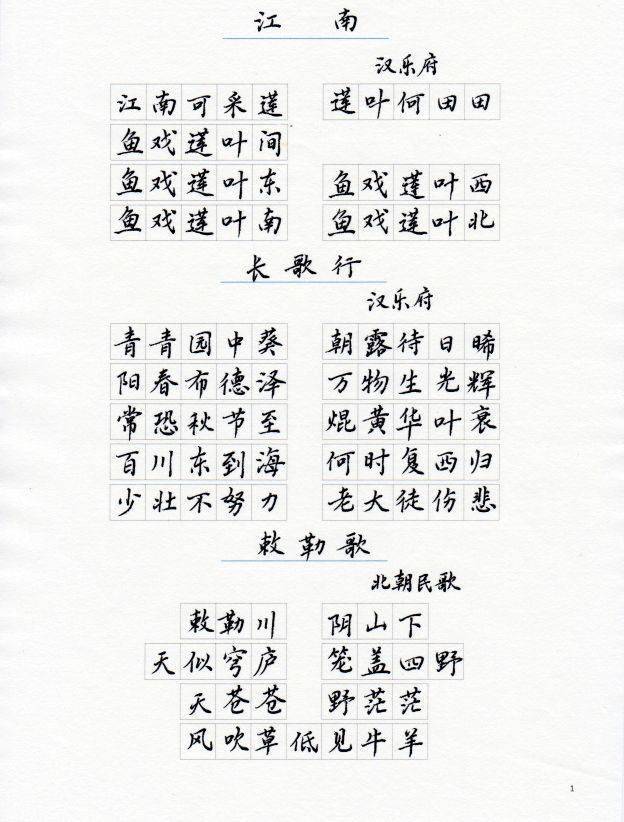 江 南
汉乐府
江南可采莲 莲叶何田田
鱼戏莲叶间
鱼戏莲叶东 鱼戏莲叶西
鱼戏莲叶南 鱼戏莲叶北
长歌行
汉乐府
青青园中葵 朝露待日晞
阳春布德泽 万物生光辉
常恐秋节至 焜黄华叶衰
百川东到海 何时复西归
少壮不努力 老大徒伤悲
敕勒歌
北朝民歌
敕勒川 阴山下
天似穹庐 笼盖四野
天苍苍 野茫茫
风吹草低见牛羊
1